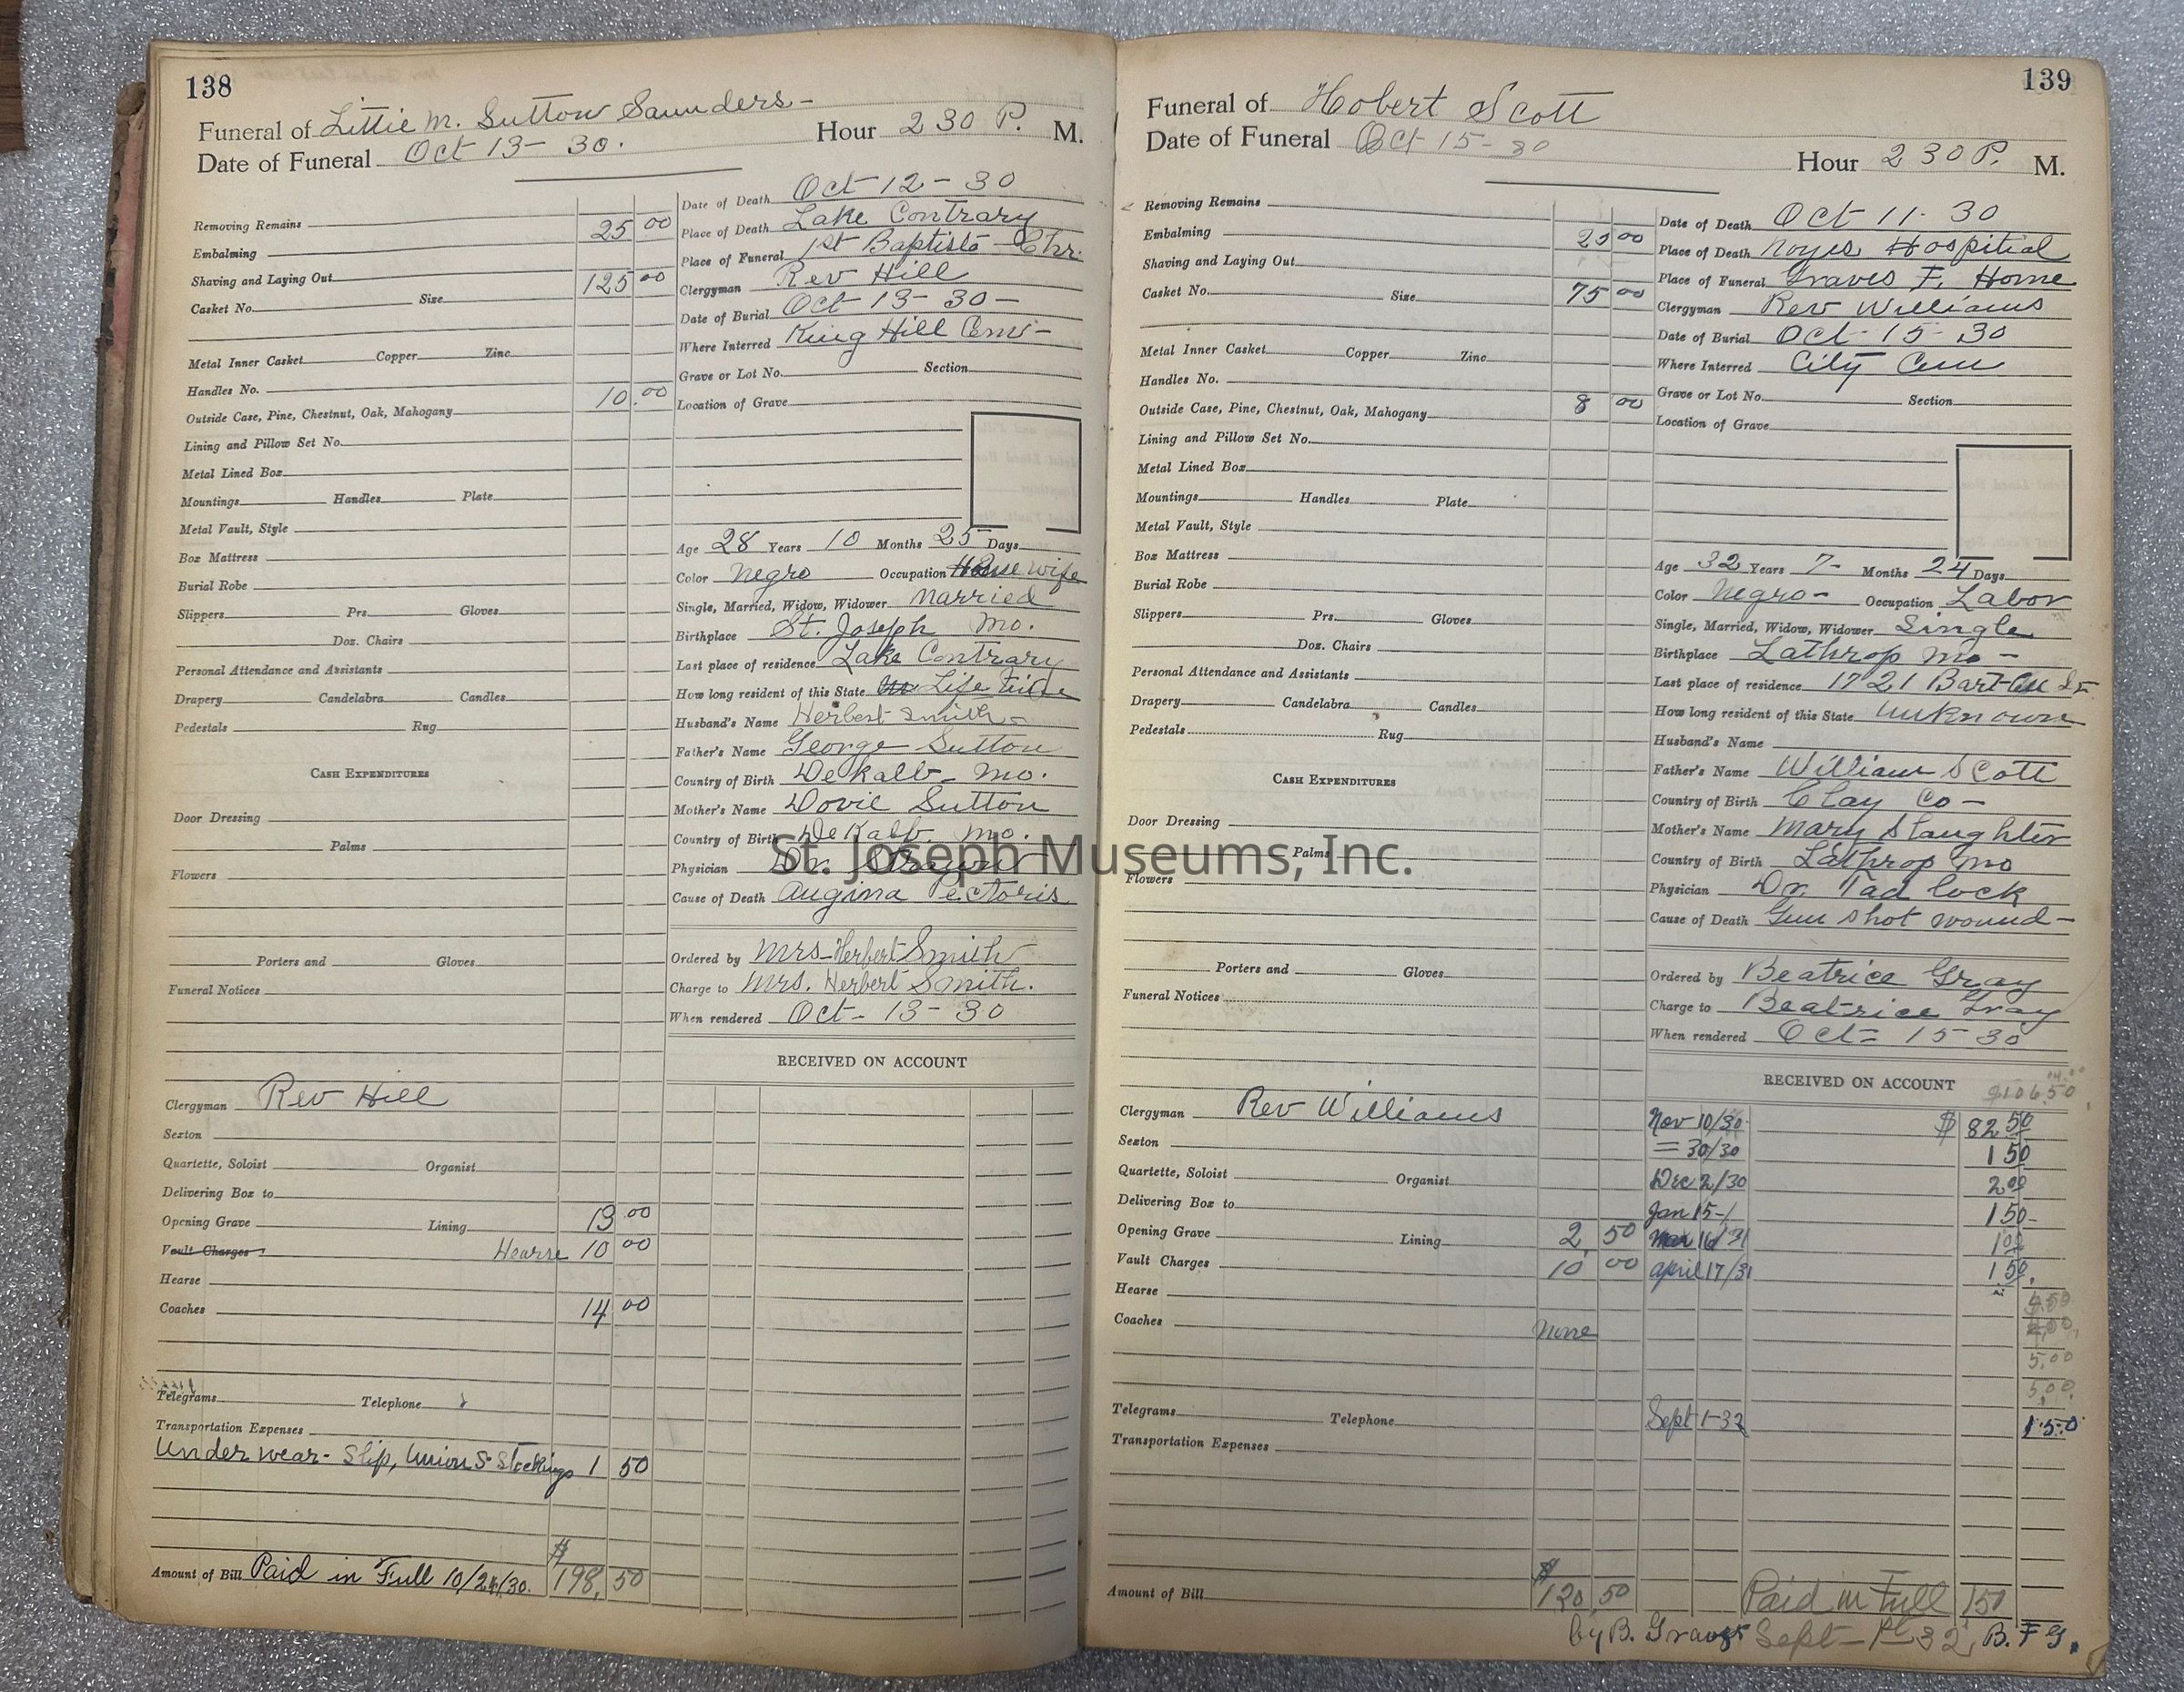 138
Funeral of Littie M. Sutton Saunders-
Date of Funeral Oct 13- 30. Hour 2 30 P. M.
Removing Remains
Embalming 25 00
Shaving and Laying Out
Casket No. Size 125 00
Metal Inner Casket Copper Zinc
Handles No.
Outside Case, Pine, Chestnut, Oak, Mahogany 10.00
Lining and Pillow Set No.
Metal Lined Box
Mountings Handles Plate
Metal Vault, Style
Box Mattress
Burial Robe
Slippers Prs. Gloves
Doz. Chairs
Personal Attendance and Assistants
Drapery Candelabra Candles
Pedestals Rug
CASH EXPENDITURES
Door Dressing
Palms
Flowers
Porters and Gloves
Funeral Notices
Clergyman Rev Hill
Sexton
Quartette, Soloist Organist
Delivering Box to
Opening Grave Lining 13 00
Vault Charges Hearse 10 00
Hearse
Coaches 14 00
Telegrams Telephone
Transportation Expenses
Under wear- Slip, Union S- Stockings 1 50
Amount of Bill Paid in Full 10/24/30. $198.50
Date of Death Oct-12-30
Place of Death Lake Contrary
Place of Funeral 1st Baptist Chr.
Clergyman Rev Hill
Date of Burial Oct-13-30-
Where Interred King Hill Cem-
Grave or Lot No. Section
Location of Grave
Age 28 Years 10 Months 25 Days
Color Negro Occupation House wife
Single, Married, Widow, Widower Married
Birthplace St. Joseph Mo.
Last place of residence Lake Contrary
How long resident of this State Life time
Husband's Name Herbert Smith-
Father's Name George Sutton
Country of Birth De Kalb- Mo.
Mother's Name Dovie Sutton
Country of Birth De Kalb. Mo.
Physician Dr.
Cause of Death Angina Pectoris
Ordered by Mrs-Herbert Smith
Charge to Mrs. Herbert Smith.
When rendered Oct- 13-30
RECEIVED ON ACCOUNT
139
Funeral of Hobert Scott
Date of Funeral Oct-15-30 Hour 2 30 P. M.
Removing Remains
Embalming 25 00
Shaving and Laying Out
Casket No. Size 75 00
Metal Inner Casket Copper Zinc
Handles No.
Outside Case, Pine, Chestnut, Oak, Mahogany 8 00
Lining and Pillow Set No.
Metal Lined Box
Mountings Handles Plate
Metal Vault, Style
Box Mattress
Burial Robe
Slippers Prs. Gloves
Doz. Chairs
Personal Attendance and Assistants
Drapery Candelabra Candles
Pedestals Rug
CASH EXPENDITURES
Door Dressing
Palms
Flowers
Porters and Gloves
Funeral Notices
Clergyman Rev Williams
Sexton
Quartette, Soloist Organist
Delivering Box to
Opening Grave Lining 2 50
Vault Charges 10 00
Hearse
Coaches None
Telegrams Telephone
Transportation Expenses
Amount of Bill $120 50
Date of Death Oct-11-30
Place of Death Noyes Hospitial
Place of Funeral Graves F. Home
Clergyman Rev Williams
Date of Burial Oct-15-30
Where Interred City Cem
Grave or Lot No. Section
Location of Grave
Age 32 Years 7- Months 24 Days
Color Negro- Occupation Labor
Single, Married, Widow, Widower Single
Birthplace Lathrop Mo-
Last place of residence 1721 St
How long resident of this State Unknown
Husband's Name
Father's Name William Scott
Country of Birth Clay Co-
Mother's Name Mary Slaughter
Country of Birth Lathrop Mo
Physician Dr. Tadlock
Cause of Death Gun shot wound-
Ordered by Beatrice Gray
Charge to Beatrice Gray
When rendered Oct= 15-30
RECEIVED ON ACCOUNT $106.50
Nov 10/30 $ 82 50
= 30/30 1 50
Dec 2/30 2 00
Jan 15-1 1 50-
Mar 16/31 1 00
April 17/31 1 50.
5.00
5.00
Sept 1-32 1.50
Paid in Full 150
by B. Graves Sept- 1st 32, B. F G.
St. Joseph Museums, Inc.